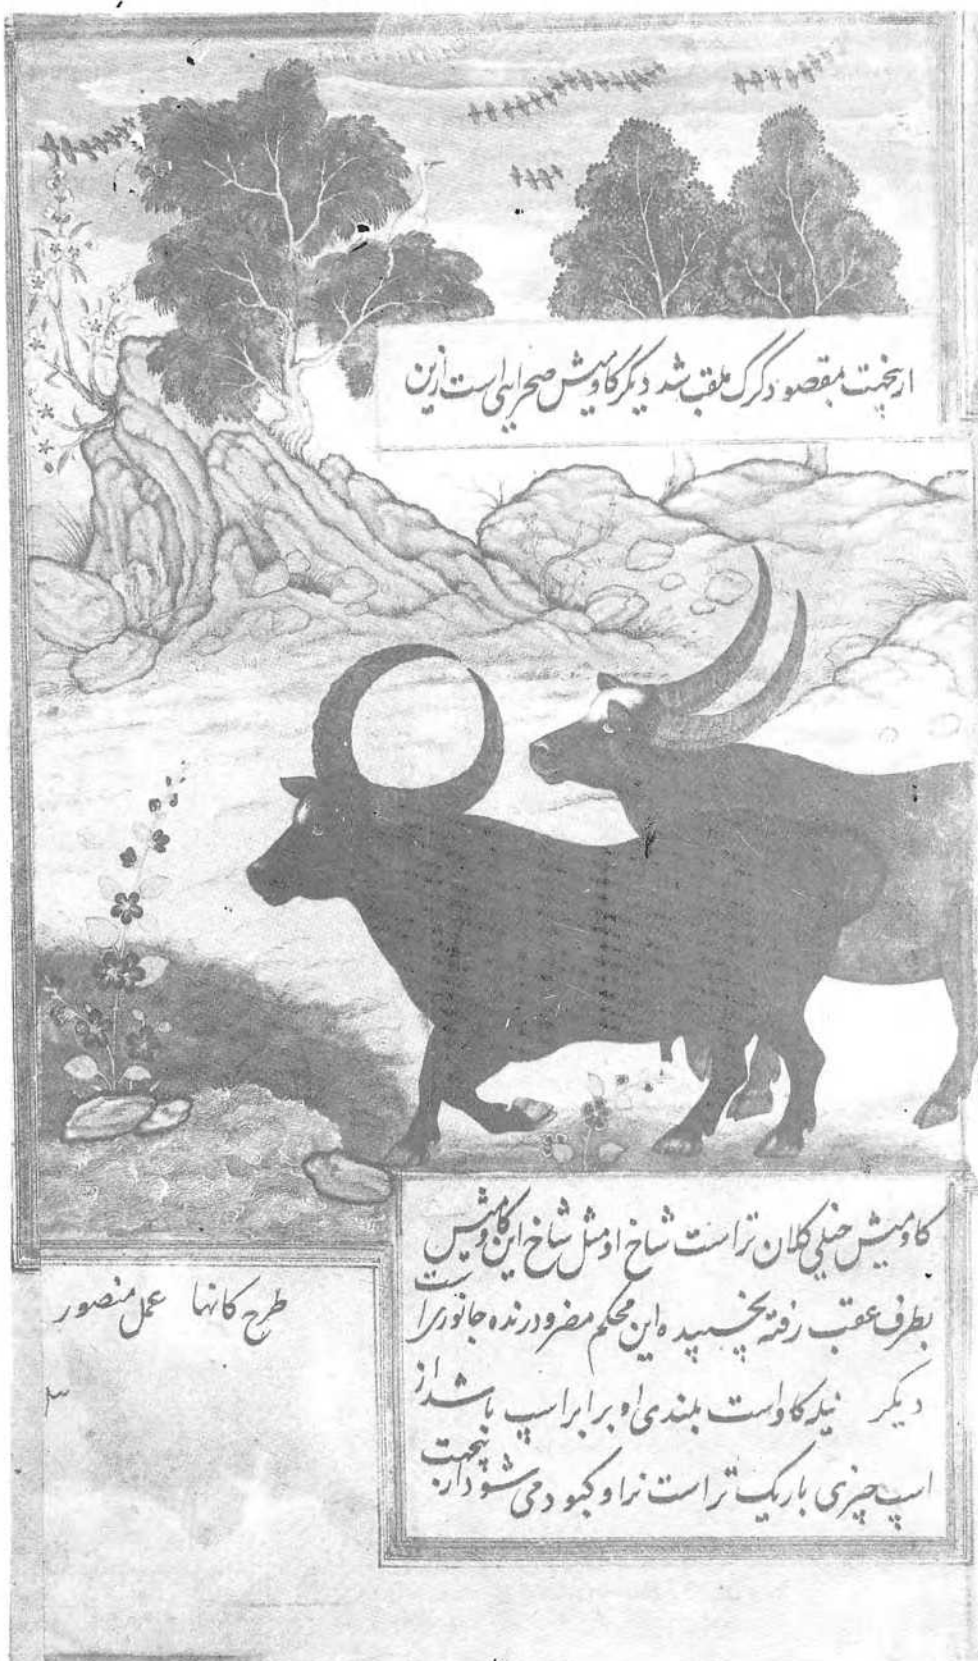 ازینجهت بمقصود کرک ملقب شد دیگر کاومیش صحرایی است ازین
کاومیش خیلی کلان تر است شاخ او مثل شاخ این کاومیش
بطرف عقب رفته نچسپیده این محکم مضر و درنده جانوری است
دیگر نیله کاو است بلندی او برابر اسپ باشد از
اسپ چیزی باریک تر است نر او کبود می شود ازینجهت
طرح کانها عمل منصور